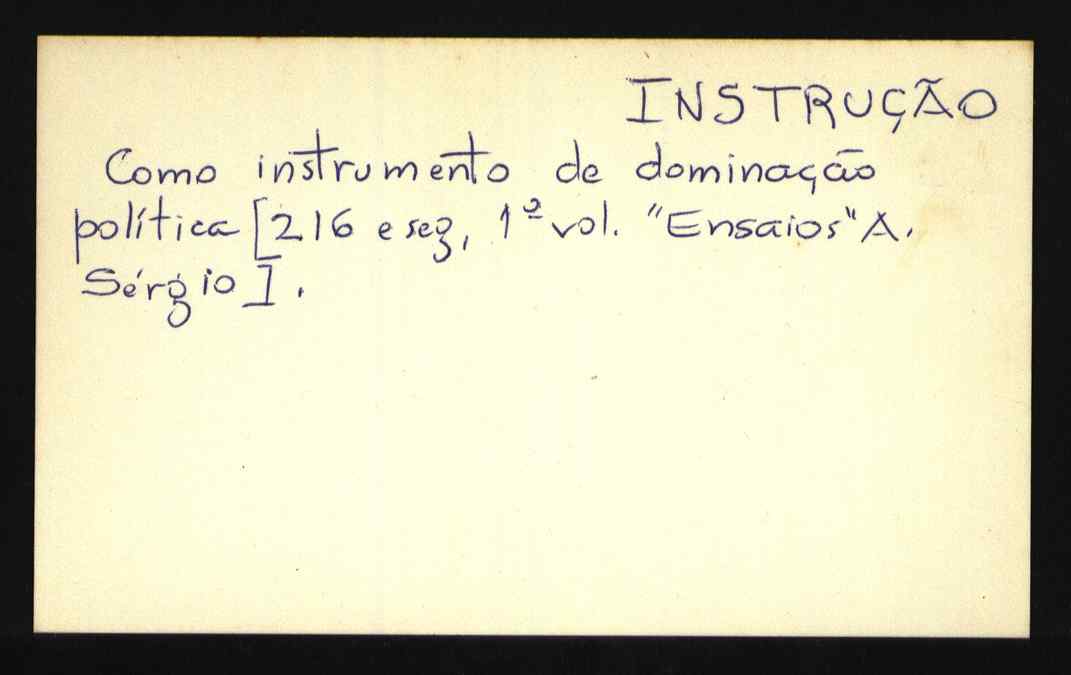 INSTRUÇÃO
Como instrumento de dominação
política [216 e seg, 1º vol. "Ensaios" A.
Sérgio].